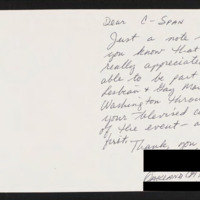 Dear C-Span
Just a note -
you know that
really appreciated
able to be part
Lesbian & Gay Mar
Washington throu
your televised c
of the event - a
first.
Thank you
Oakland CA